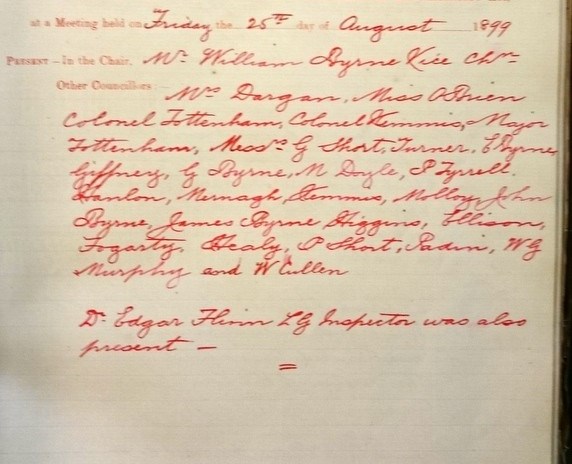 at a Meeting held on Friday the 25th day of August 1899
PRESENT – In the Chair, Mr William Byrne Vice Chrn
Other Councillors :—
Mrs Dargan, Miss O'Brien
Colonel Tottenham, Colonel Kemmis, Major
Tottenham, Messrs G Short, Turner, E Byrne
Giffney, G Byrne, M Doyle, P Tyrrell,
Hanlon, Mernagh, Kemmis, Molloy, John
Byrne, James Byrne Higgins, Ellison,
Fogarty, Healy, P Short, WG
Murphy and W Cullen
Dr Edgar Flinn LG Inspector was also
present —